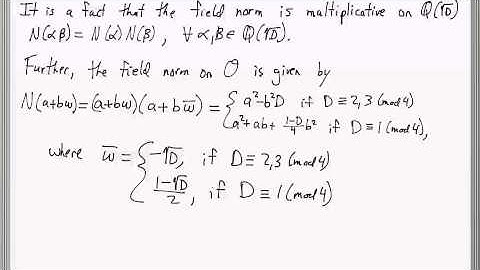 It is a fact that the field norm is multiplicative on Q(√D)
N(αβ) = N(α)N(β), ∀ α,β ∈ Q(√D).
Further, the field norm on O is given by
N(a+bw) = (a+bw)(a+bw̅) = { a²-b²D if D ≡ 2,3 (mod 4)
a²+ab+ (1-D)/4 b² if D ≡ 1 (mod 4),
where w̅ = { -√D, if D ≡ 2,3 (mod 4)
(1-√D)/2, if D ≡ 1 (mod 4)